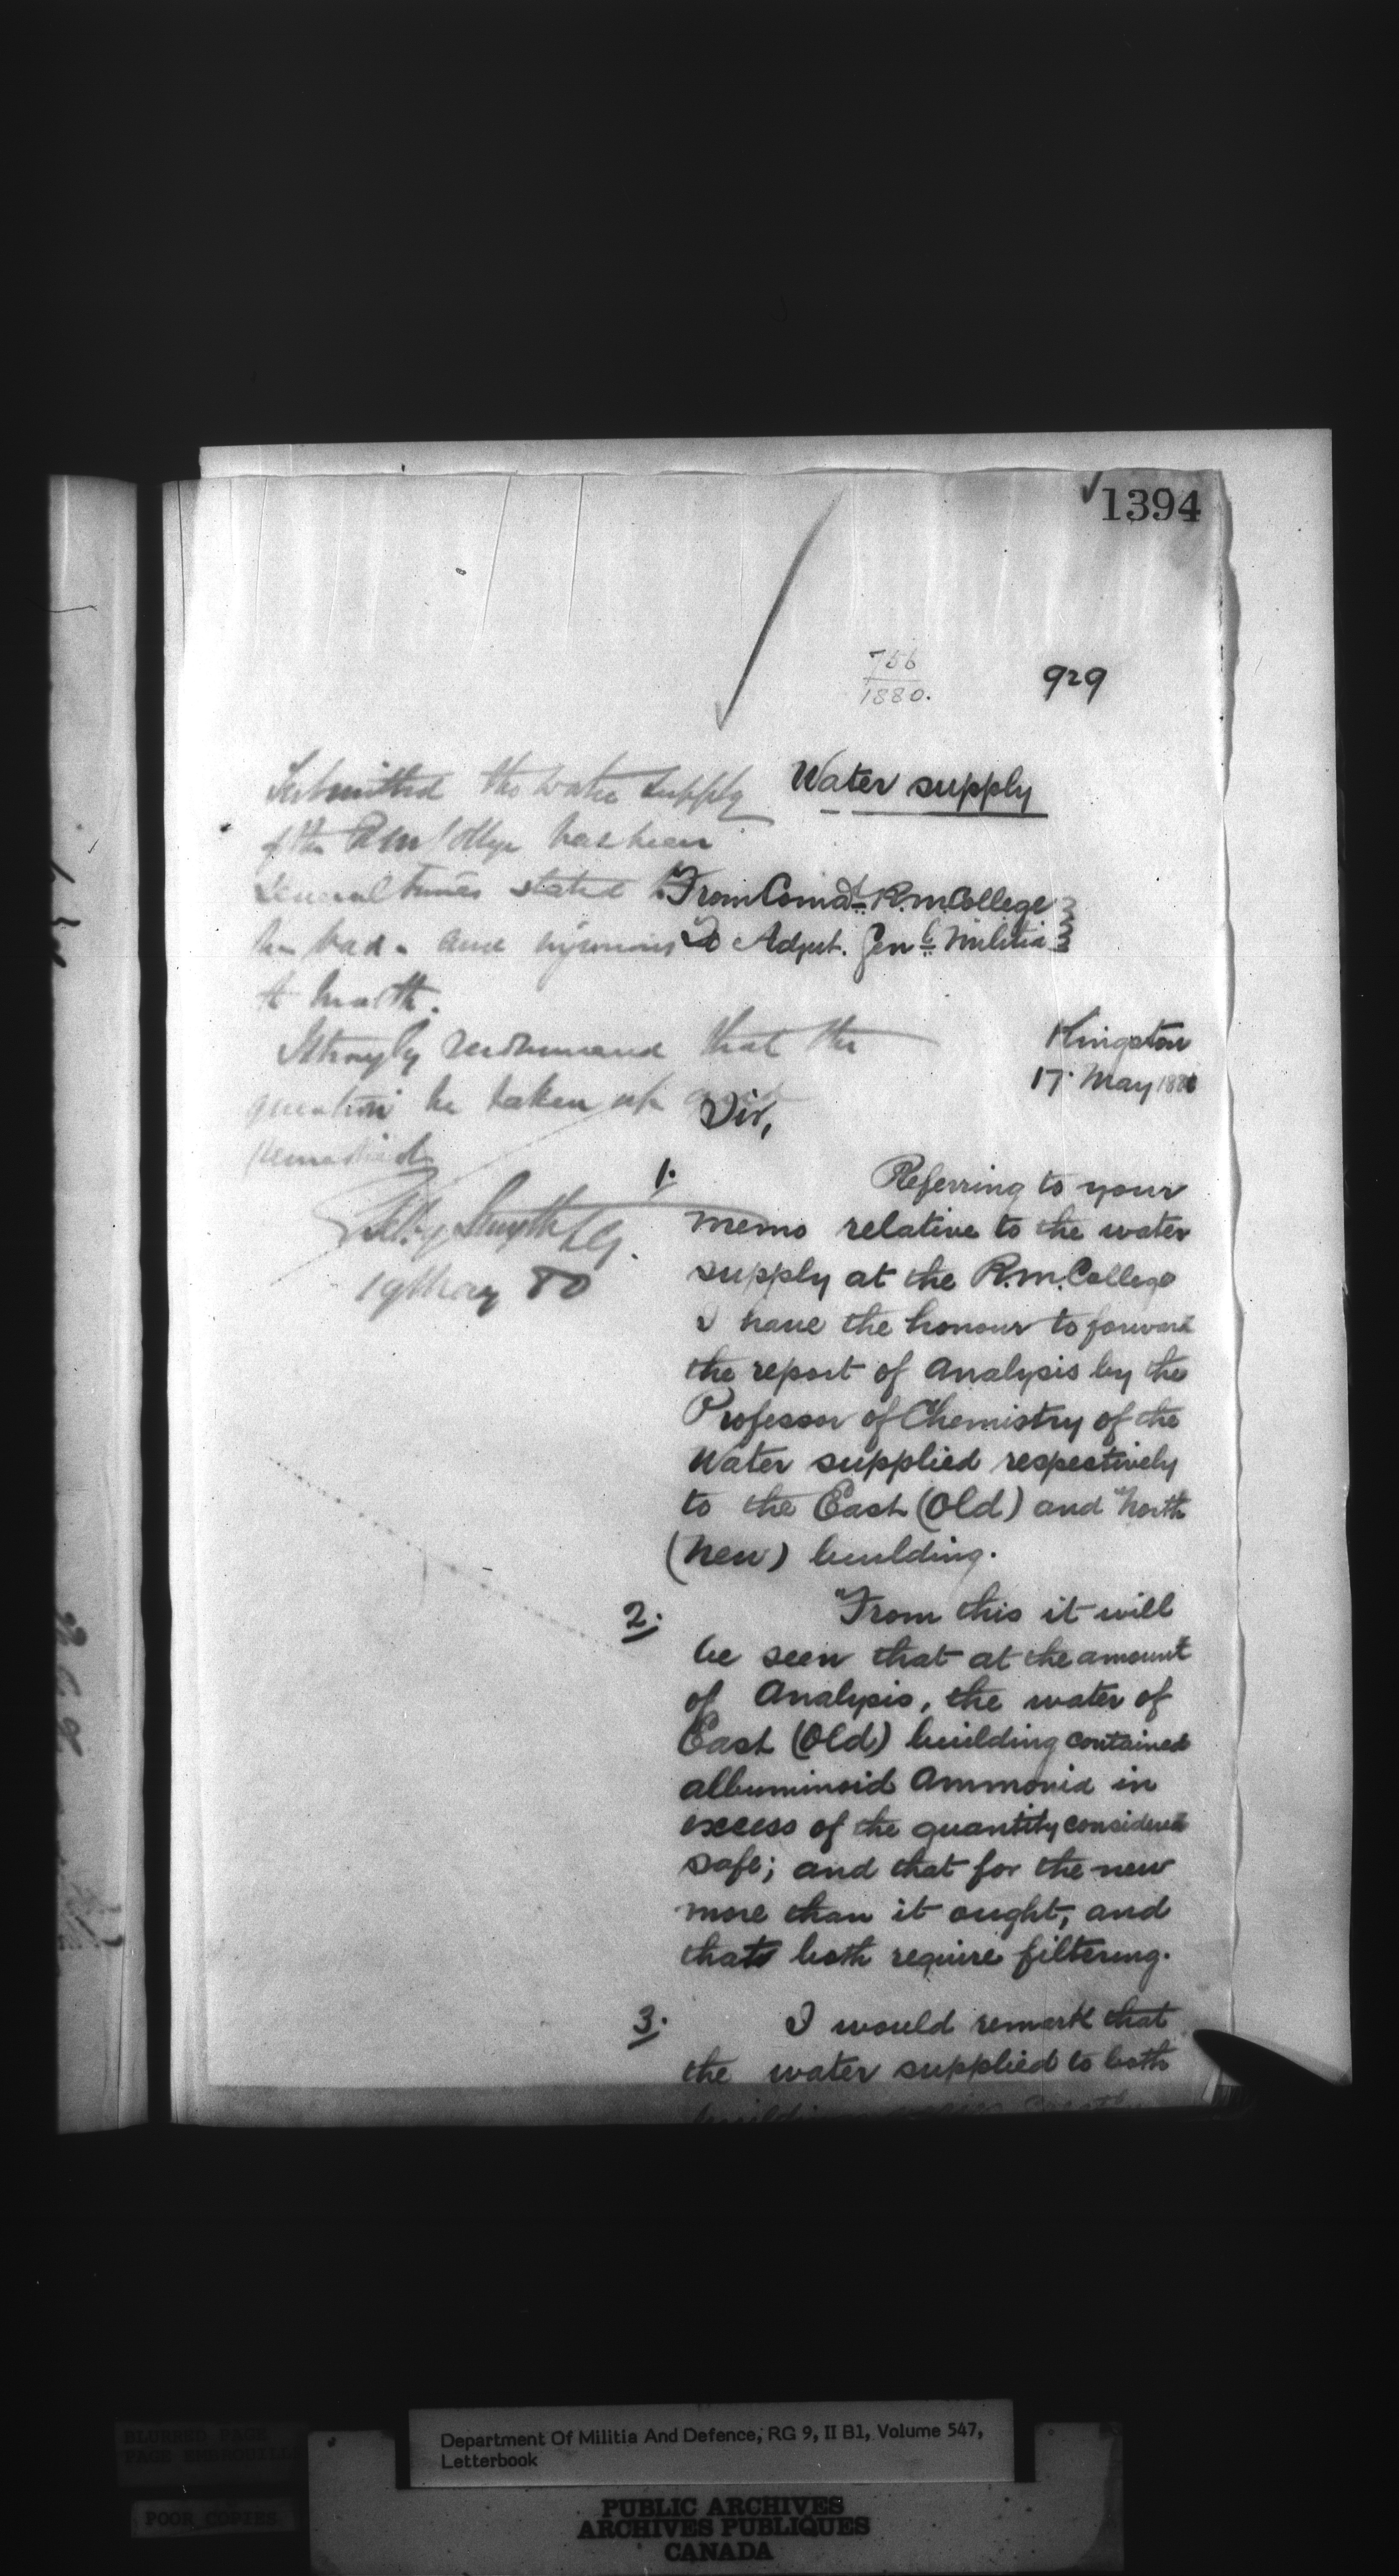 1394
756
1880.
929
Water supply
Submitted the water supply
of the RM College has been
several times stated to
be bad - and injurious
to health.
Strongly recommend that the
question be taken up and
remedied
Selby Smyth LG.
19 May 80
From Comdt. R.M. College
To Adjut. Genl. Militia
Kingston
17. May 1880
Sir,
1. Referring to your
memo relative to the water
supply at the R.M. College
I have the honour to forward
the report of Analysis by the
Professor of Chemistry of the
Water supplied respectively
to the East (Old) and North
(New) building.
2. From this it will
be seen that at the amount
of Analysis, the water of
East (Old) building contained
albuminoid Ammonia in
excess of the quantity considered
safe; and that for the new
more than it ought, and
that both require filtering.
3. I would remark that
the water supplied to both
BLURRED PAGE
PAGE EMBROUILLEE
POOR COPIES
Department Of Militia And Defence, RG 9, II B1, Volume 547,
Letterbook
PUBLIC ARCHIVES
ARCHIVES PUBLIQUES
CANADA